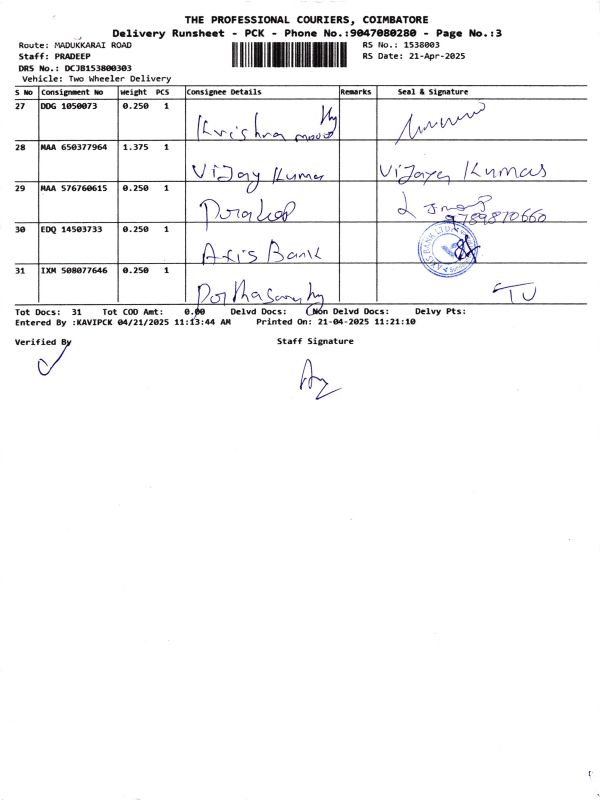 THE PROFESSIONAL COURIERS, COIMBATORE
Delivery Runsheet - PCK - Phone No.:9047080280 - Page No.:3
Route: MADUKKARAI ROAD RS No.: 1538003
Staff: PRADEEP RS Date: 21-Apr-2025
DRS No.: DCJB153800303
Vehicle: Two Wheeler Delivery
S No Consignment No Weight PCS Consignee Details Remarks Seal & Signature
27 DDG 1050073 0.250 1 Krishna
28 MAA 650377964 1.375 1 Vijay Kumar Vijaya Kumar
29 MAA 576760615 0.250 1
9789870660
30 EDQ 14503733 0.250 1 Axis Bank AXIS BANK LTD
31 IXM 508077646 0.250 1
Tot Docs: 31 Tot COD Amt: 0.00 Delvd Docs: Non Delvd Docs: Delvy Pts:
Entered By :KAVIPCK 04/21/2025 11:13:44 AM Printed On: 21-04-2025 11:21:10
Verified By Staff Signature